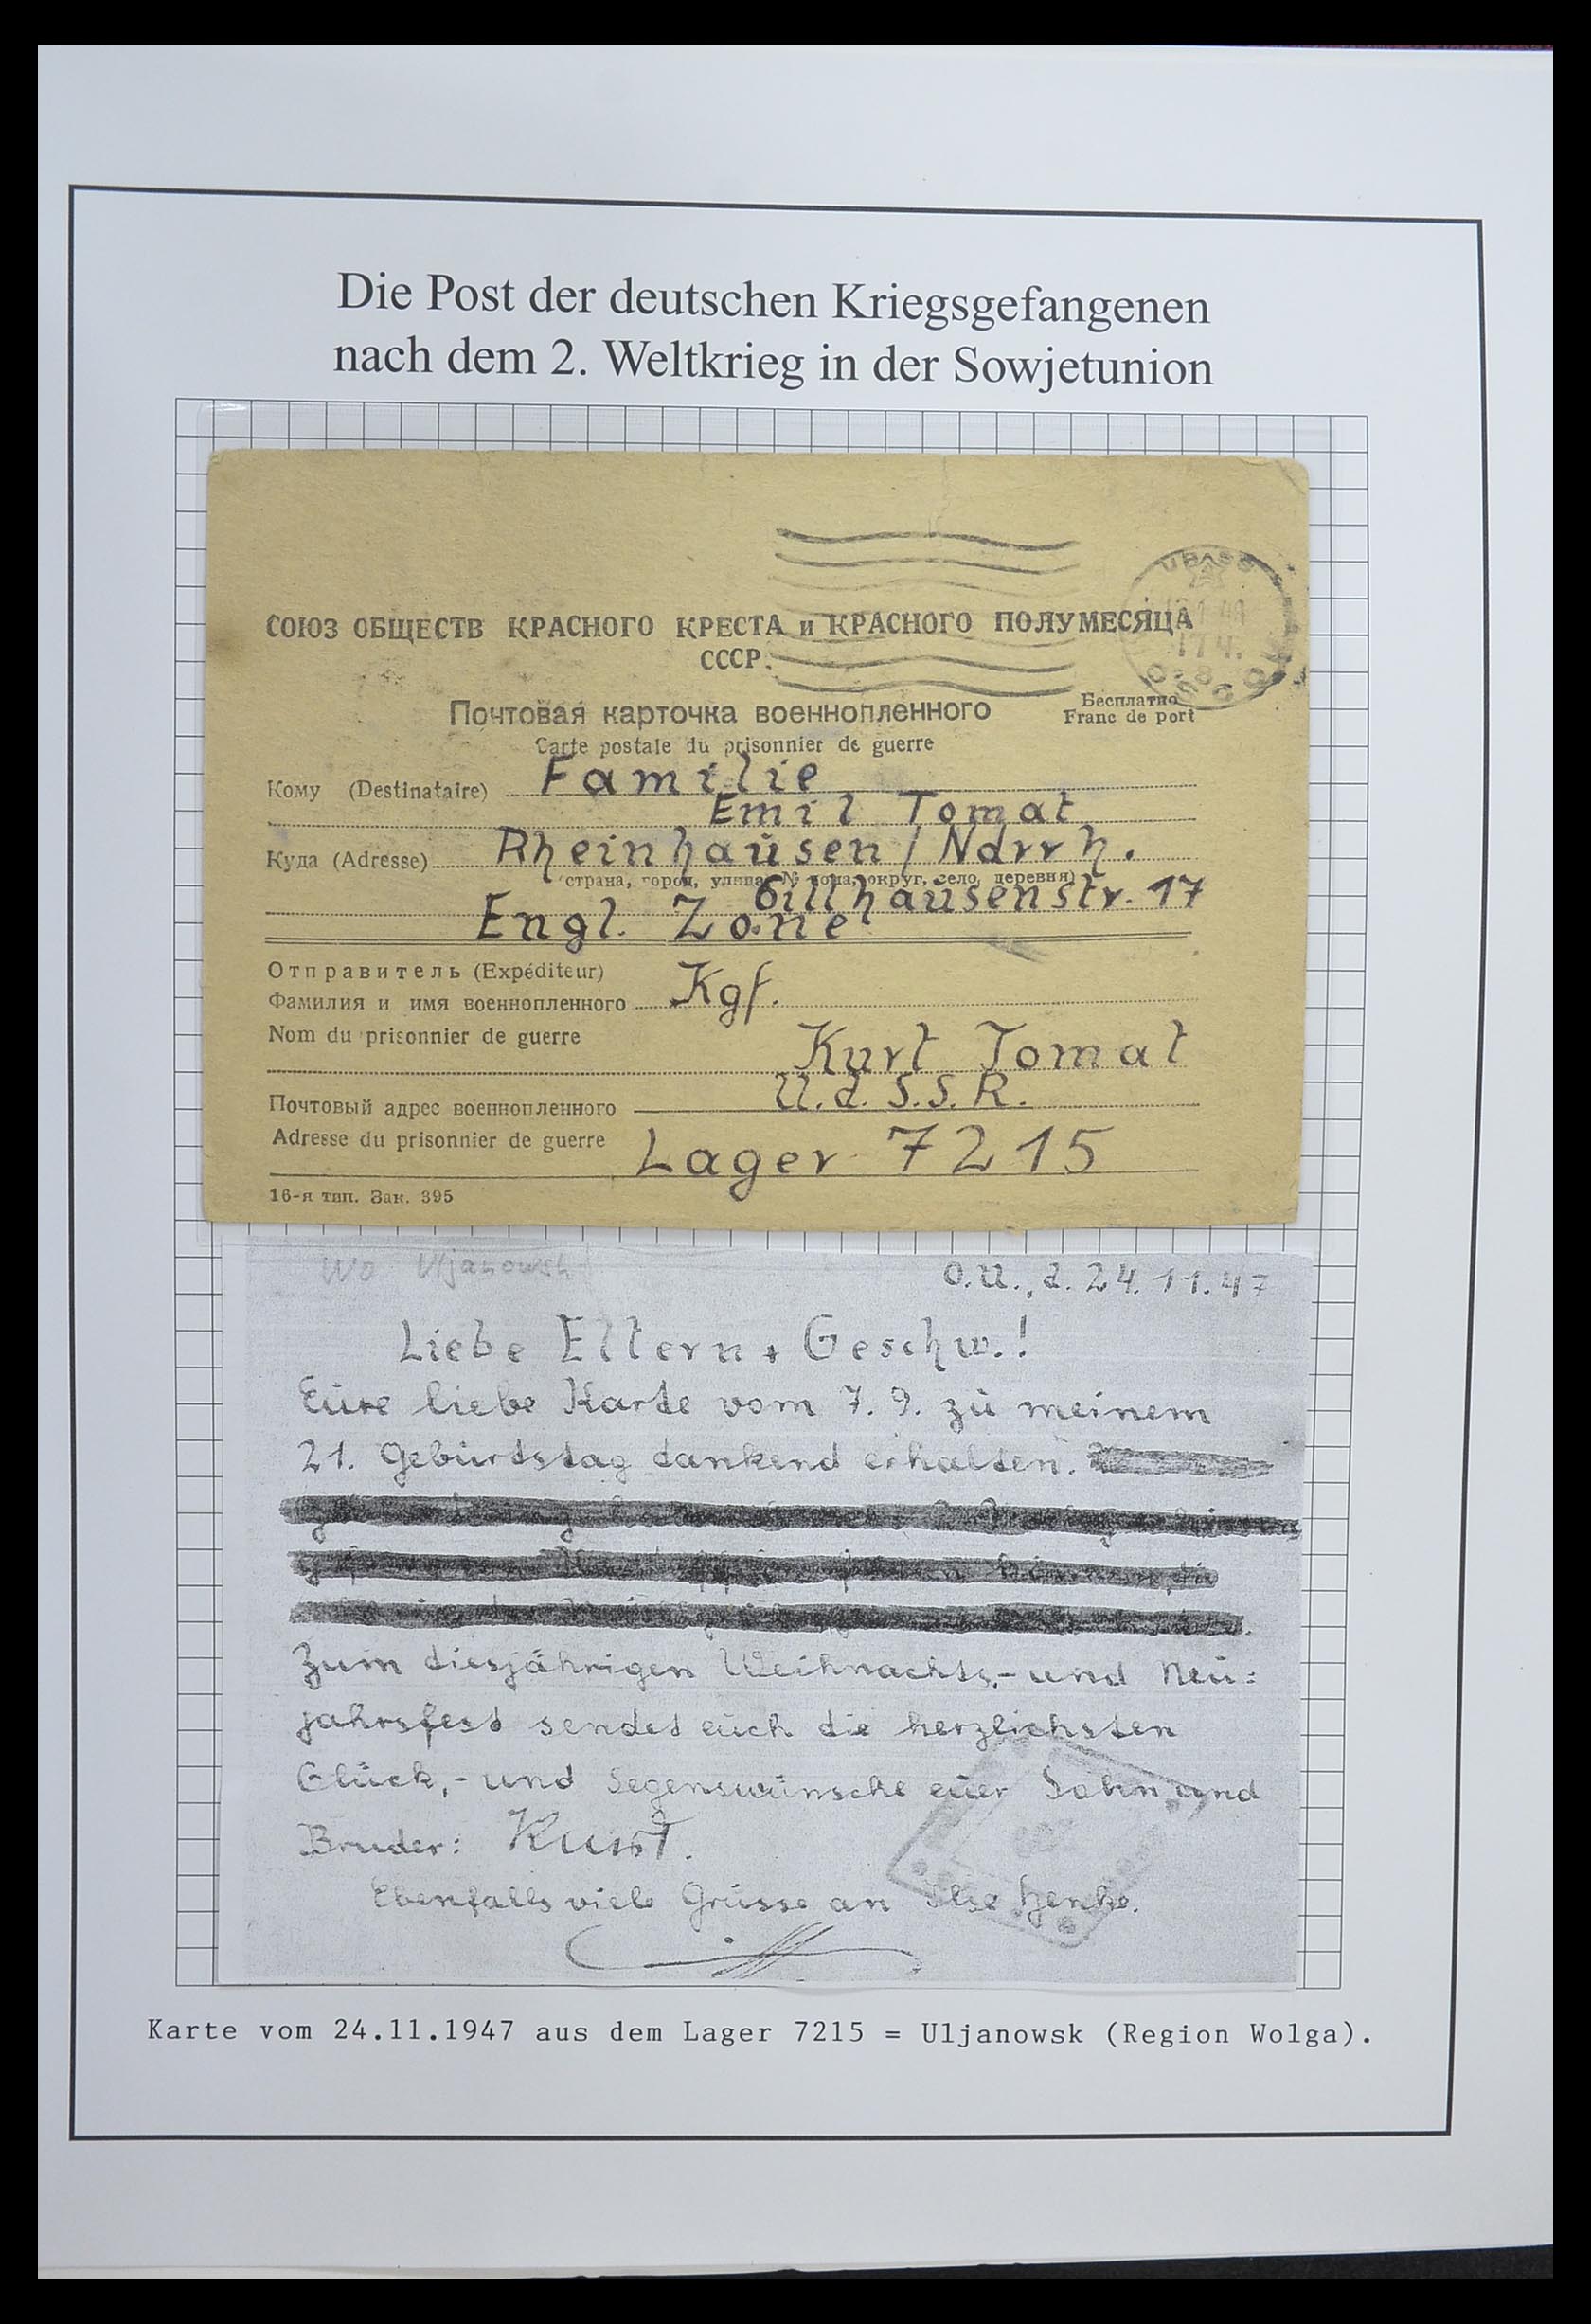 Die Post der deutschen Kriegsgefangenen
nach dem 2. Weltkrieg in der Sowjetunion
СОЮЗ ОБЩЕСТВ КРАСНОГО КРЕСТА и КРАСНОГО ПОЛУМЕСЯЦА
СССР.
Почтовая карточка военнопленного
Бесплатно
Franc de port
Carte postale du prisonnier de guerre
Кому (Destinataire) Familie
Emil Tomat
Куда (Adresse) Rheinhausen / Ndrrh.
(страна, город, улица, № дома, округ, село, деревня)
Gillhausenstr. 17
Engl. Zone
Отправитель (Expéditeur)
Фамилия и имя военнопленного Kgf.
Nom du prisonnier de guerre
Kurt Tomat
U.d.S.S.R.
Почтовый адрес военнопленного
Adresse du prisonnier de guerre Lager 7215
16-я тип. Зак. 395
Wo Uljanowsk
O.U., d. 24.11.47
Liebe Eltern + Geschw.!
Eure liebe Karte vom 7. 9. zu meinem
21. Geburtstag dankend erhalten.
Zum diesjährigen Weihnachts,- und Neu=
jahrsfest sendet euch die herzlichsten
Glück,- und Segenswünsche euer Sohn und
Bruder: Kurt.
Ebenfalls viele Grüsse an Ilse Henke.
Karte vom 24.11.1947 aus dem Lager 7215 = Uljanowsk (Region Wolga).